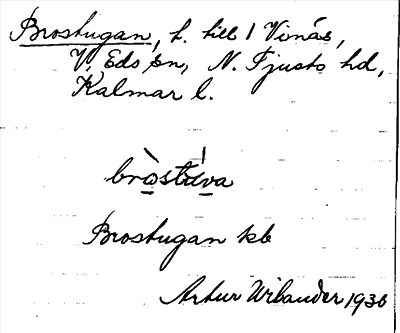 Brostugan, t. till 1 Vinäs,
V. Eds sn, N. Tjusts hd,
Kalmar l.
bròstúva
Brostugan kb
Artur Wilander 1936